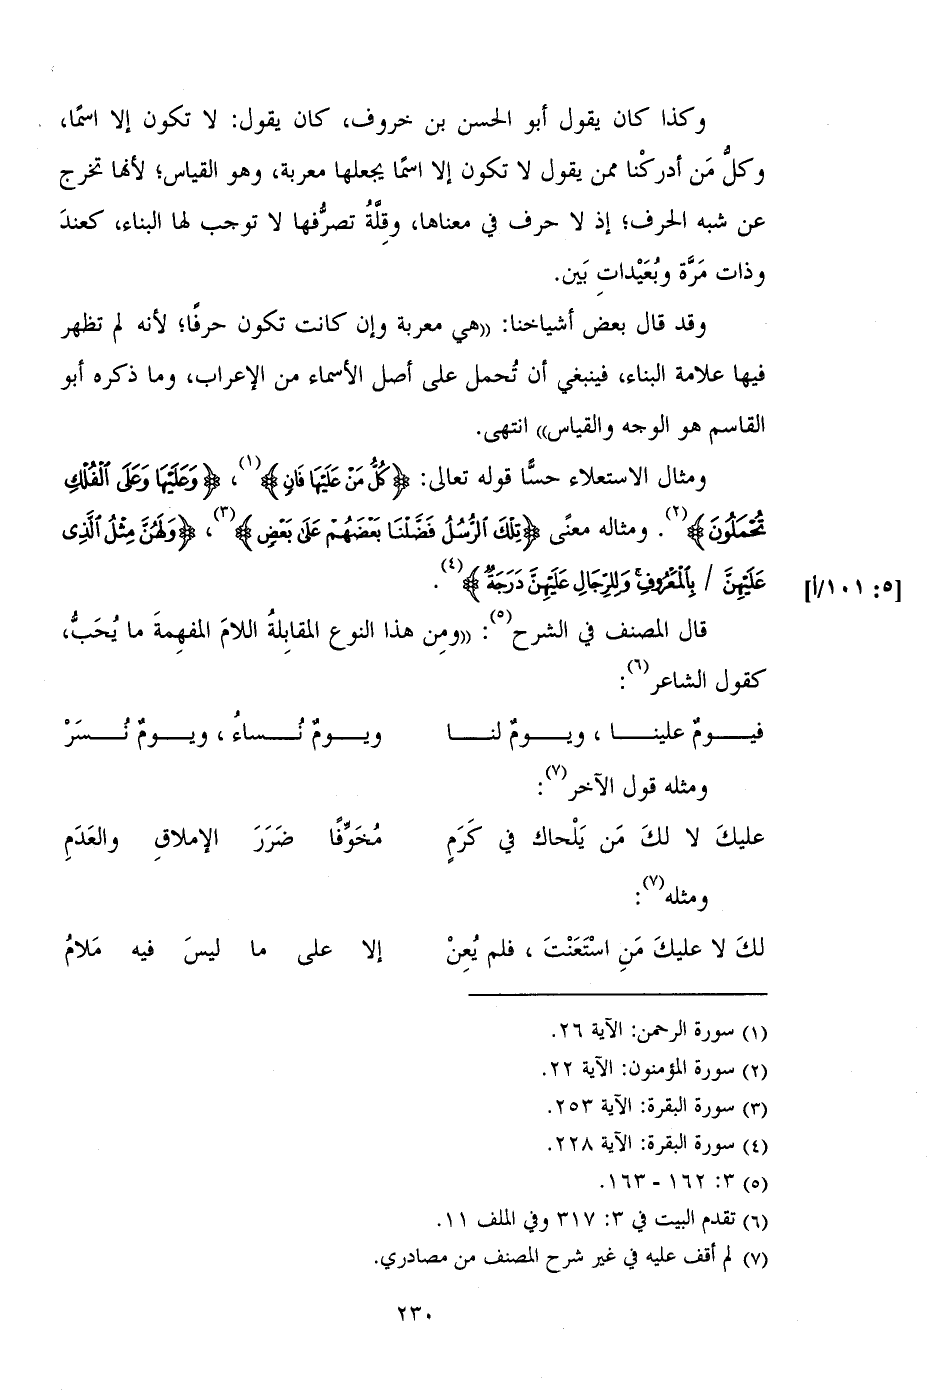 وكذا كان يقول أبو الحسن بن خروف، كان يقول: لا تكون إلا اسمًا،
وكلُّ مَن أدركْنا ممن يقول لا تكون إلا اسمًا يجعلها معربة، وهو القياس؛ لأنها تخرج
عن شبه الحرف؛ إذ لا حرف في معناها، وقِلَّةُ تصرُّفها لا توجب لها البناء، كعندَ
وذات مَرَّة وبُعَيْداتِ بَين.
وقد قال بعض أشياخنا: ((هي معربة وإن كانت تكون حرفًا؛ لأنه لم تظهر
فيها علامة البناء، فينبغي أن تُحمل على أصل الأسماء من الإعراب، وما ذكره أبو
القاسم هو الوجه والقياس)) انتهى.
ومثال الاستعلاء حسًّا قوله تعالى: ﴿كُلُّ مَنْ عَلَيْهَا فَانٍ﴾(١)، ﴿وَعَلَيْهَا وَعَلَى ٱلْفُلْكِ
تُحْمَلُونَ﴾(٢). ومثاله معنًى ﴿تِلْكَ ٱلرُّسُلُ فَضَّلْنَا بَعْضَهُمْ عَلَىٰ بَعْضٍ﴾(٣)، ﴿وَلَهُنَّ مِثْلُ ٱلَّذِى
عَلَيْهِنَّ / بِٱلْمَعْرُوفِ ۚ وَلِلرِّجَالِ عَلَيْهِنَّ دَرَجَةٌ ۗ﴾(٤). [٥: ١٠١/أ]
قال المصنف في الشرح(٥): ((ومِن هذا النوع المقابلةُ اللامَ المفهمةَ ما يُحَبُّ،
كقول الشاعر(٦):
فيـــومٌ علينـــا ، ويـــومٌ لنـــا ويـــومٌ نُـــساءُ ، ويـــومٌ نُـــسَرْ
ومثله قول الآخر(٧):
عليكَ لا لكَ مَن يَلْحاك في كَرَمٍ مُخَوِّفًا ضَرَرَ الإملاقِ والعَدَمِ
ومثله(٧):
لكَ لا عليكَ مَنِ اسْتَعَنْتَ ، فلم يُعِنْ إلا على ما ليسَ فيه مَلامُ
(١) سورة الرحمن: الآية ٢٦.
(٢) سورة المؤمنون: الآية ٢٢.
(٣) سورة البقرة: الآية ٢٥٣.
(٤) سورة البقرة: الآية ٢٢٨.
(٥) ٣: ١٦٢ - ١٦٣.
(٦) تقدم البيت في ٣: ٣١٧ وفي الملف ١١.
(٧) لم أقف عليه في غير شرح المصنف من مصادري.
٢٣٠